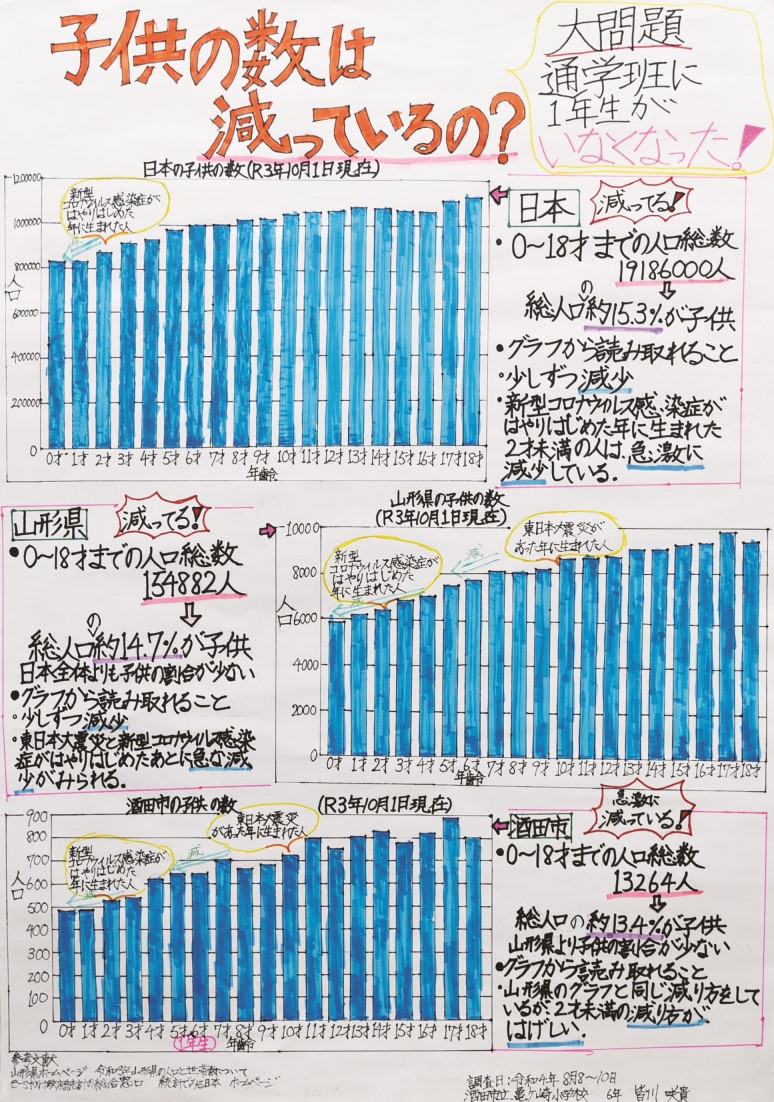 子供の数は
減っているの?
大問題
通学班に
1年生が
いなくなった!
日本の子供の数(R3年10月1日現在)
1200000
1000000
800000
600000
400000
200000
0
人口
新型
コロナウイルス感染症が
はやりはじめた
年に生まれた人
0才 1才 2才 3才 4才 5才 6才 7才 8才 9才 10才 11才 12才 13才 14才 15才 16才 17才 18才
年齢
日本
減ってる!
・0〜18才までの人口総数
19186000人
⇩
総人口の約15.3%が子供
●グラフから読み取れること
・少しずつ減少
・新型コロナウイルス感染症が
はやりはじめた年に生まれた
2才未満の人は、急激に
減少している.
山形県
減ってる!
●0〜18才までの人口総数
154882人
⇩
総人口の約14.7%が子供
日本全体よりも子供の割合が少ない
●グラフから読み取れること
○少しずつ減少
・東日本大震災と新型コロナウイルス感染
症がはやりはじめたあとに急な減
少がみられる.
山形県の子供の数
(R3年10月1日現在)
10000
8000
6000
4000
2000
0
人口
新型
コロナウイルス感染症が
はやりはじめた
年に生まれた人
減
東日本大震災が
あった年に生まれた人
0才 1才 2才 3才 4才 5才 6才 7才 8才 9才 10才 11才 12才 13才 14才 15才 16才 17才 18才
年齢
酒田市の子供の数 (R3年10月1日現在)
900
800
700
600
500
400
300
200
100
0
人口
新型
コロナウイルス感染症が
はやりはじめた
年に生まれた人
減
東日本大震災
があった年に生まれた人
0才 1才 2才 3才 4才 5才 6才 7才 8才 9才 10才 11才 12才 13才 14才 15才 16才 17才 18才
1年生
年齢
酒田市
急激に
減っている!
●0〜18才までの人口総数
13264人
⇩
総人口の約13.4%が子供
山形県より子供の割合が少ない
●グラフから読み取れること
・山形県のグラフと同じ減り方をして
いるが、2才未満の減り方が
はげしい.
参考文献
山形県ホームページ 令和3年山形県の人口と世帯数について
e-Stat政府統計の総合窓口 統計でみる日本 ホームページ
調査日:令和4年8月8〜10日
酒田市立亀ケ崎小学校 6年 皆川 咲貴